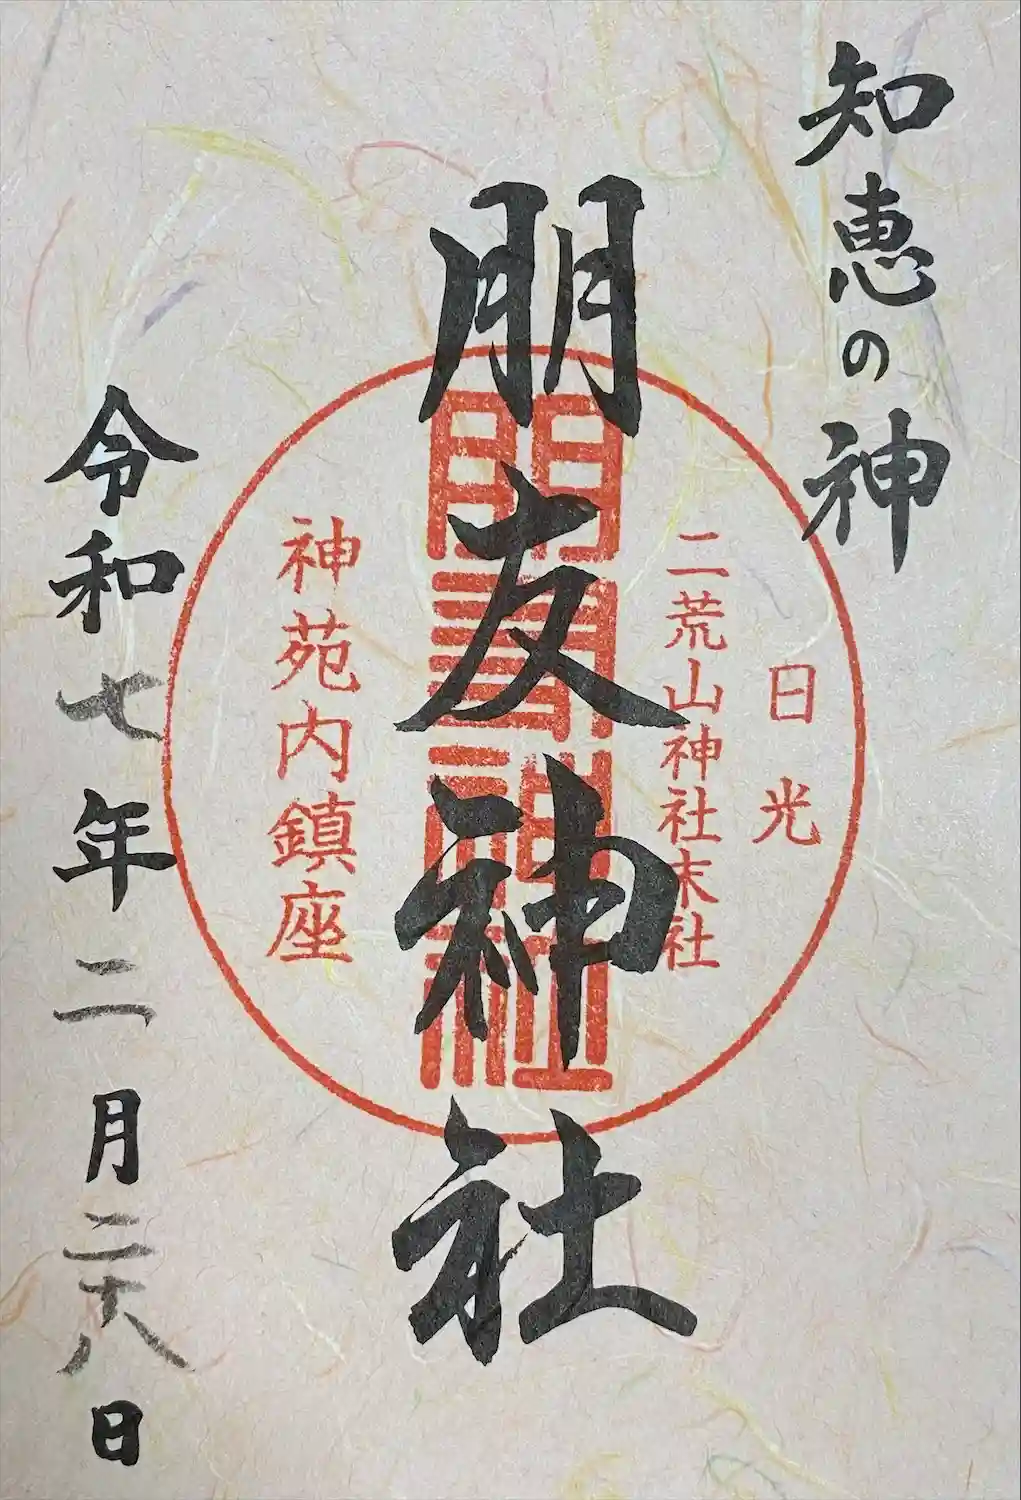 知恵の神
日光
二荒山神社末社
朋友神社
神苑内鎮座
令和七年二月二十八日